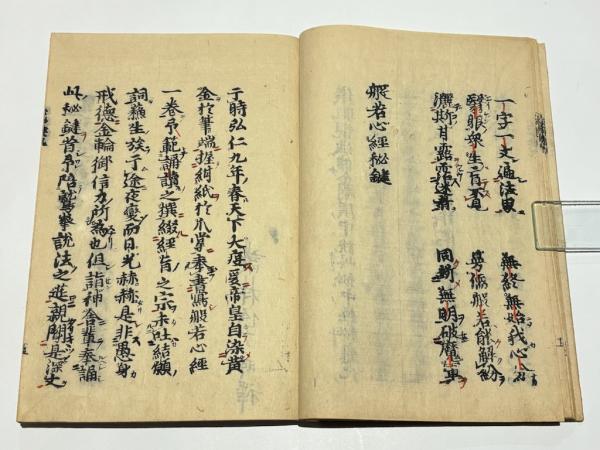 一字一文遍法界 無終無始我心分
翳眼衆生盲不見 曼儒般若能解紛
灑斯甘露霑迷者 同斷無明破魔軍
般若心經秘鍵
于時弘仁九年春天下大疫爰帝皇自染黄
金於筆端握紺紙於爪掌奉書寫般若心經
一巻予範講讀之撰綴經旨之宗未吐結願
詞蘇生族于途夜變而日光赫赫是非愚身
戒德金輪御信力所為也但詣神舎輩奉誦
此秘鍵昔予陪鷲峯説法之莚親聞是深文